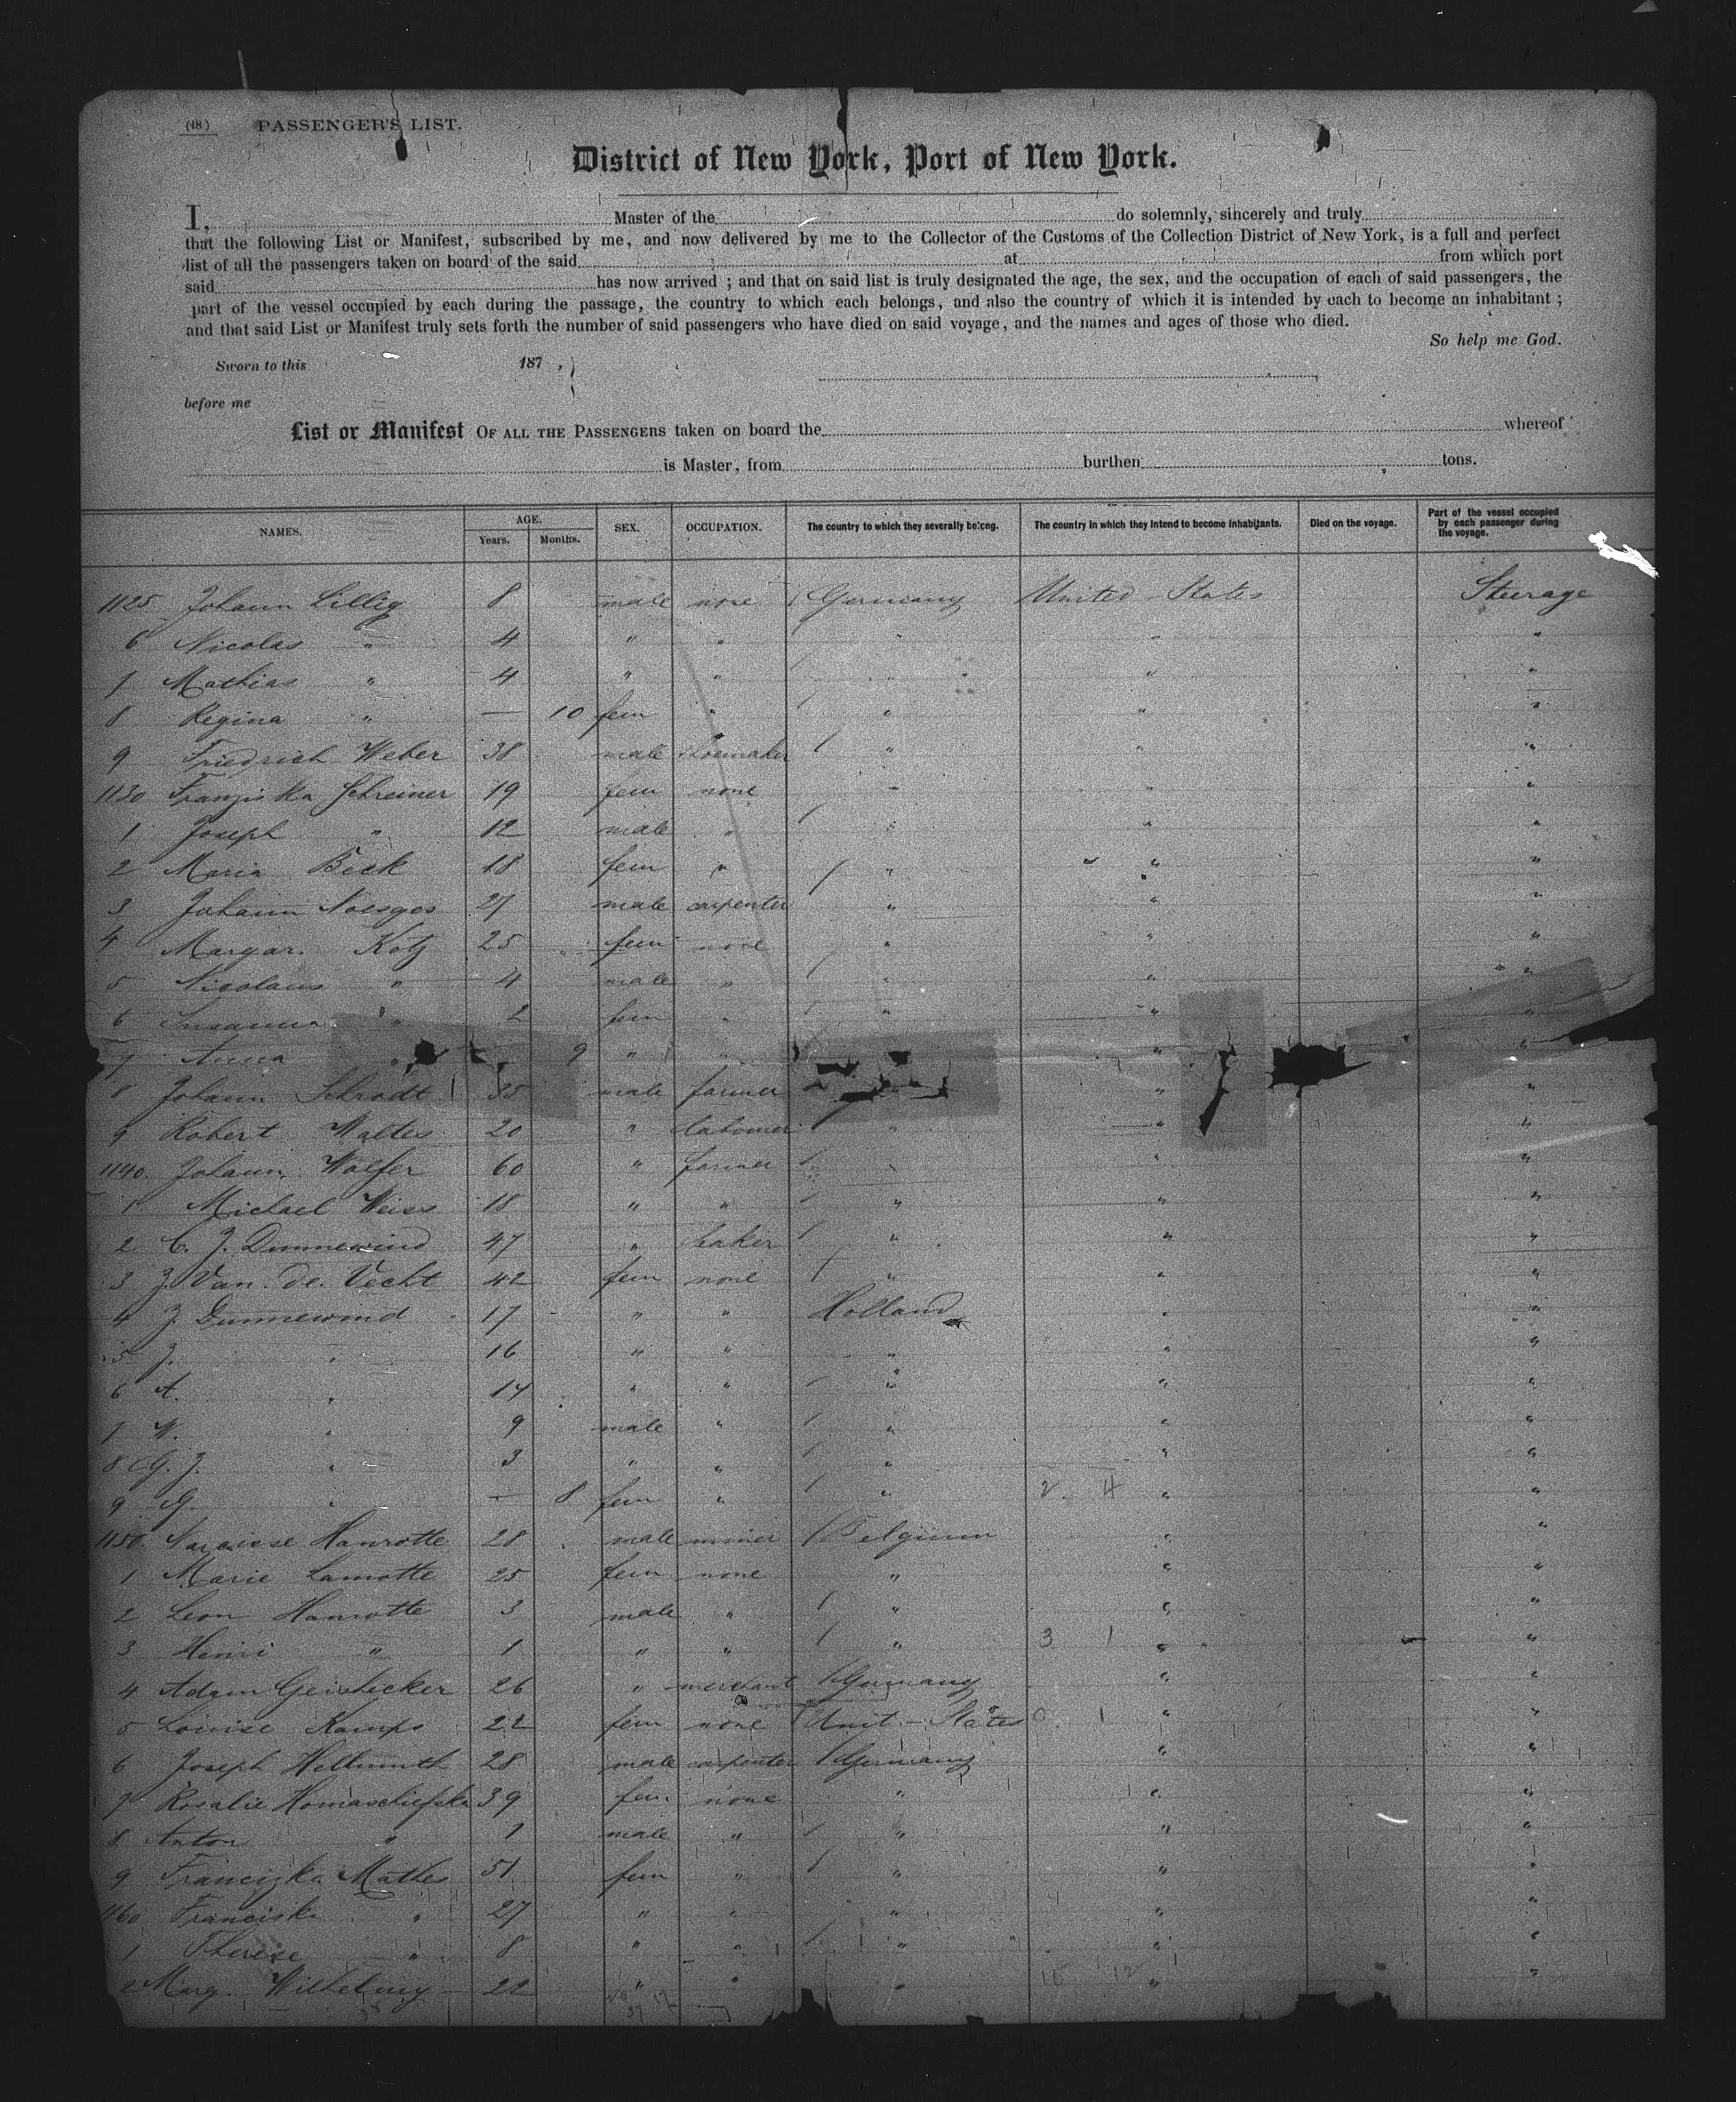 (48) PASSENGER'S LIST.
District of New York, Port of New York.
I, Master of the do solemnly, sincerely and truly
that the following List or Manifest, subscribed by me, and now delivered by me to the Collector of the Customs of the Collection District of New York, is a full and perfect
list of all the passengers taken on board of the said at from which port
said has now arrived; and that on said list is truly designated the age, the sex, and the occupation of each of said passengers, the
part of the vessel occupied by each during the passage, the country to which each belongs, and also the country of which it is intended by each to become an inhabitant;
and that said List or Manifest truly sets forth the number of said passengers who have died on said voyage, and the names and ages of those who died.
So help me God.
Sworn to this 187 ,
before me
List or Manifest OF ALL THE PASSENGERS taken on board the whereof
is Master, from burthen tons.
NAMES. AGE. Years. Months. SEX. OCCUPATION. The country to which they severally belong. The country in which they intend to become inhabitants. Died on the voyage. Part of the vessel occupied by each passenger during the voyage.
1125 Johann Lillig 8 male none Germany United States Steerage
6 Nicolas " 4 " " " " "
7 Mathias " 4 " " " " "
8 Regina " — 10 fem " " " "
9 Friedrich Weber 38 male shoemaker " " "
1130 Franziska Schreiner 19 fem none " " "
1 Joseph " 12 male " " " "
2 Maria Beck 18 fem " " " "
3 Johann Noesges 27 male carpenter " " "
4 Margar. Kotz 25 fem none " " "
5 Nicolaus " 4 male " " " "
6 Susanna " 2 fem " " " "
7 Anna " 9 " " " "
8 Johann Schrodt 35 male farmer " " "
9 Robert Walter 20 " labourer " " "
1140 Johann Wolfer 60 " farmer " " "
1 Michael Weiss 18 " " " " "
2 C. J. Dunnewind 47 " baker " " "
3 J. Van de Vecht 42 fem none " " "
4 J. Dunnewind 17 " " Holland " "
5 J. " 16 " " " " "
6 A. " 14 " " " " "
7 W. " 9 male " " " "
8 G. J. " 3 " " " " "
9 G. " — 8 fem " " 2 4 " "
1150 Narcisse Hanrotte 28 male miner Belgium " "
1 Marie Lamotte 25 fem none " " "
2 Leon Hanrotte 3 male " " " "
3 Henri " 1 " " " 3 1 " "
4 Adam Geishecker 26 " merchant Germany " "
5 Louise Kamps 22 fem none Unit. States 0 1 " "
6 Joseph Hellmuth 28 male carpenter Germany " "
7 Rosalie 39 fem none " " "
8 Anton " 1 male " " " "
9 Franciska Mathes 51 fem " " " "
1160 Franciska " 27 " " " " "
1 Therese " 8 " " " " "
2 Marg. Wilhelmy 22 " " " " "